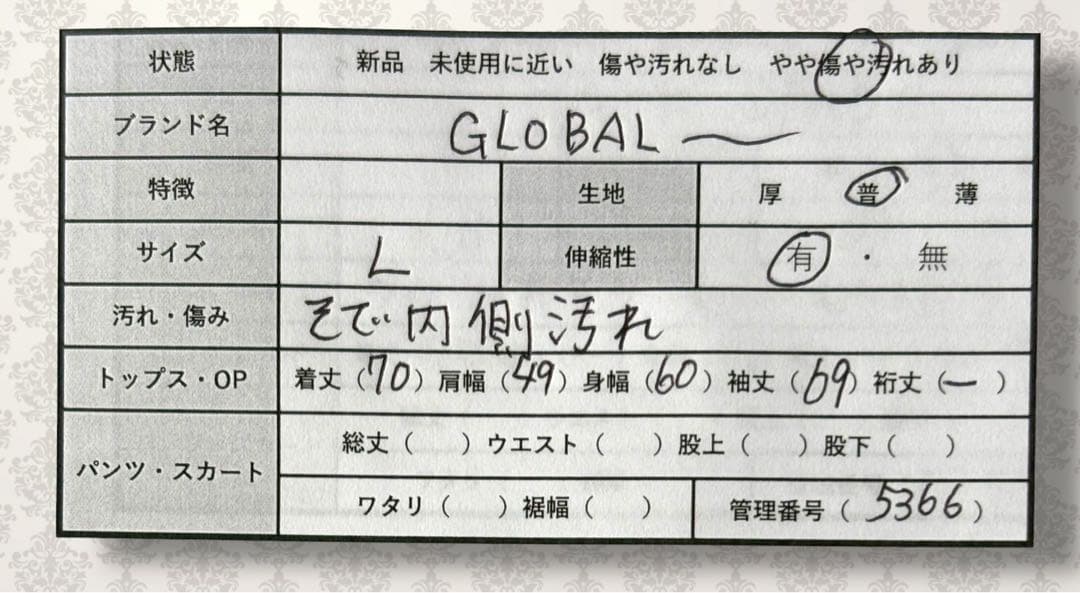 状態 新品 未使用に近い 傷や汚れなし やや傷や汚れあり
ブランド名 GLOBAL
特徴 生地 厚 普 薄
サイズ L 伸縮性 有・無
汚れ・傷み そで内側汚れ
トップス・OP 着丈(70)肩幅(49)身幅(60)袖丈(69)裄丈(ー)
パンツ・スカート 総丈( )ウエスト( )股上( )股下( )
ワタリ( )裾幅( ) 管理番号(5366)